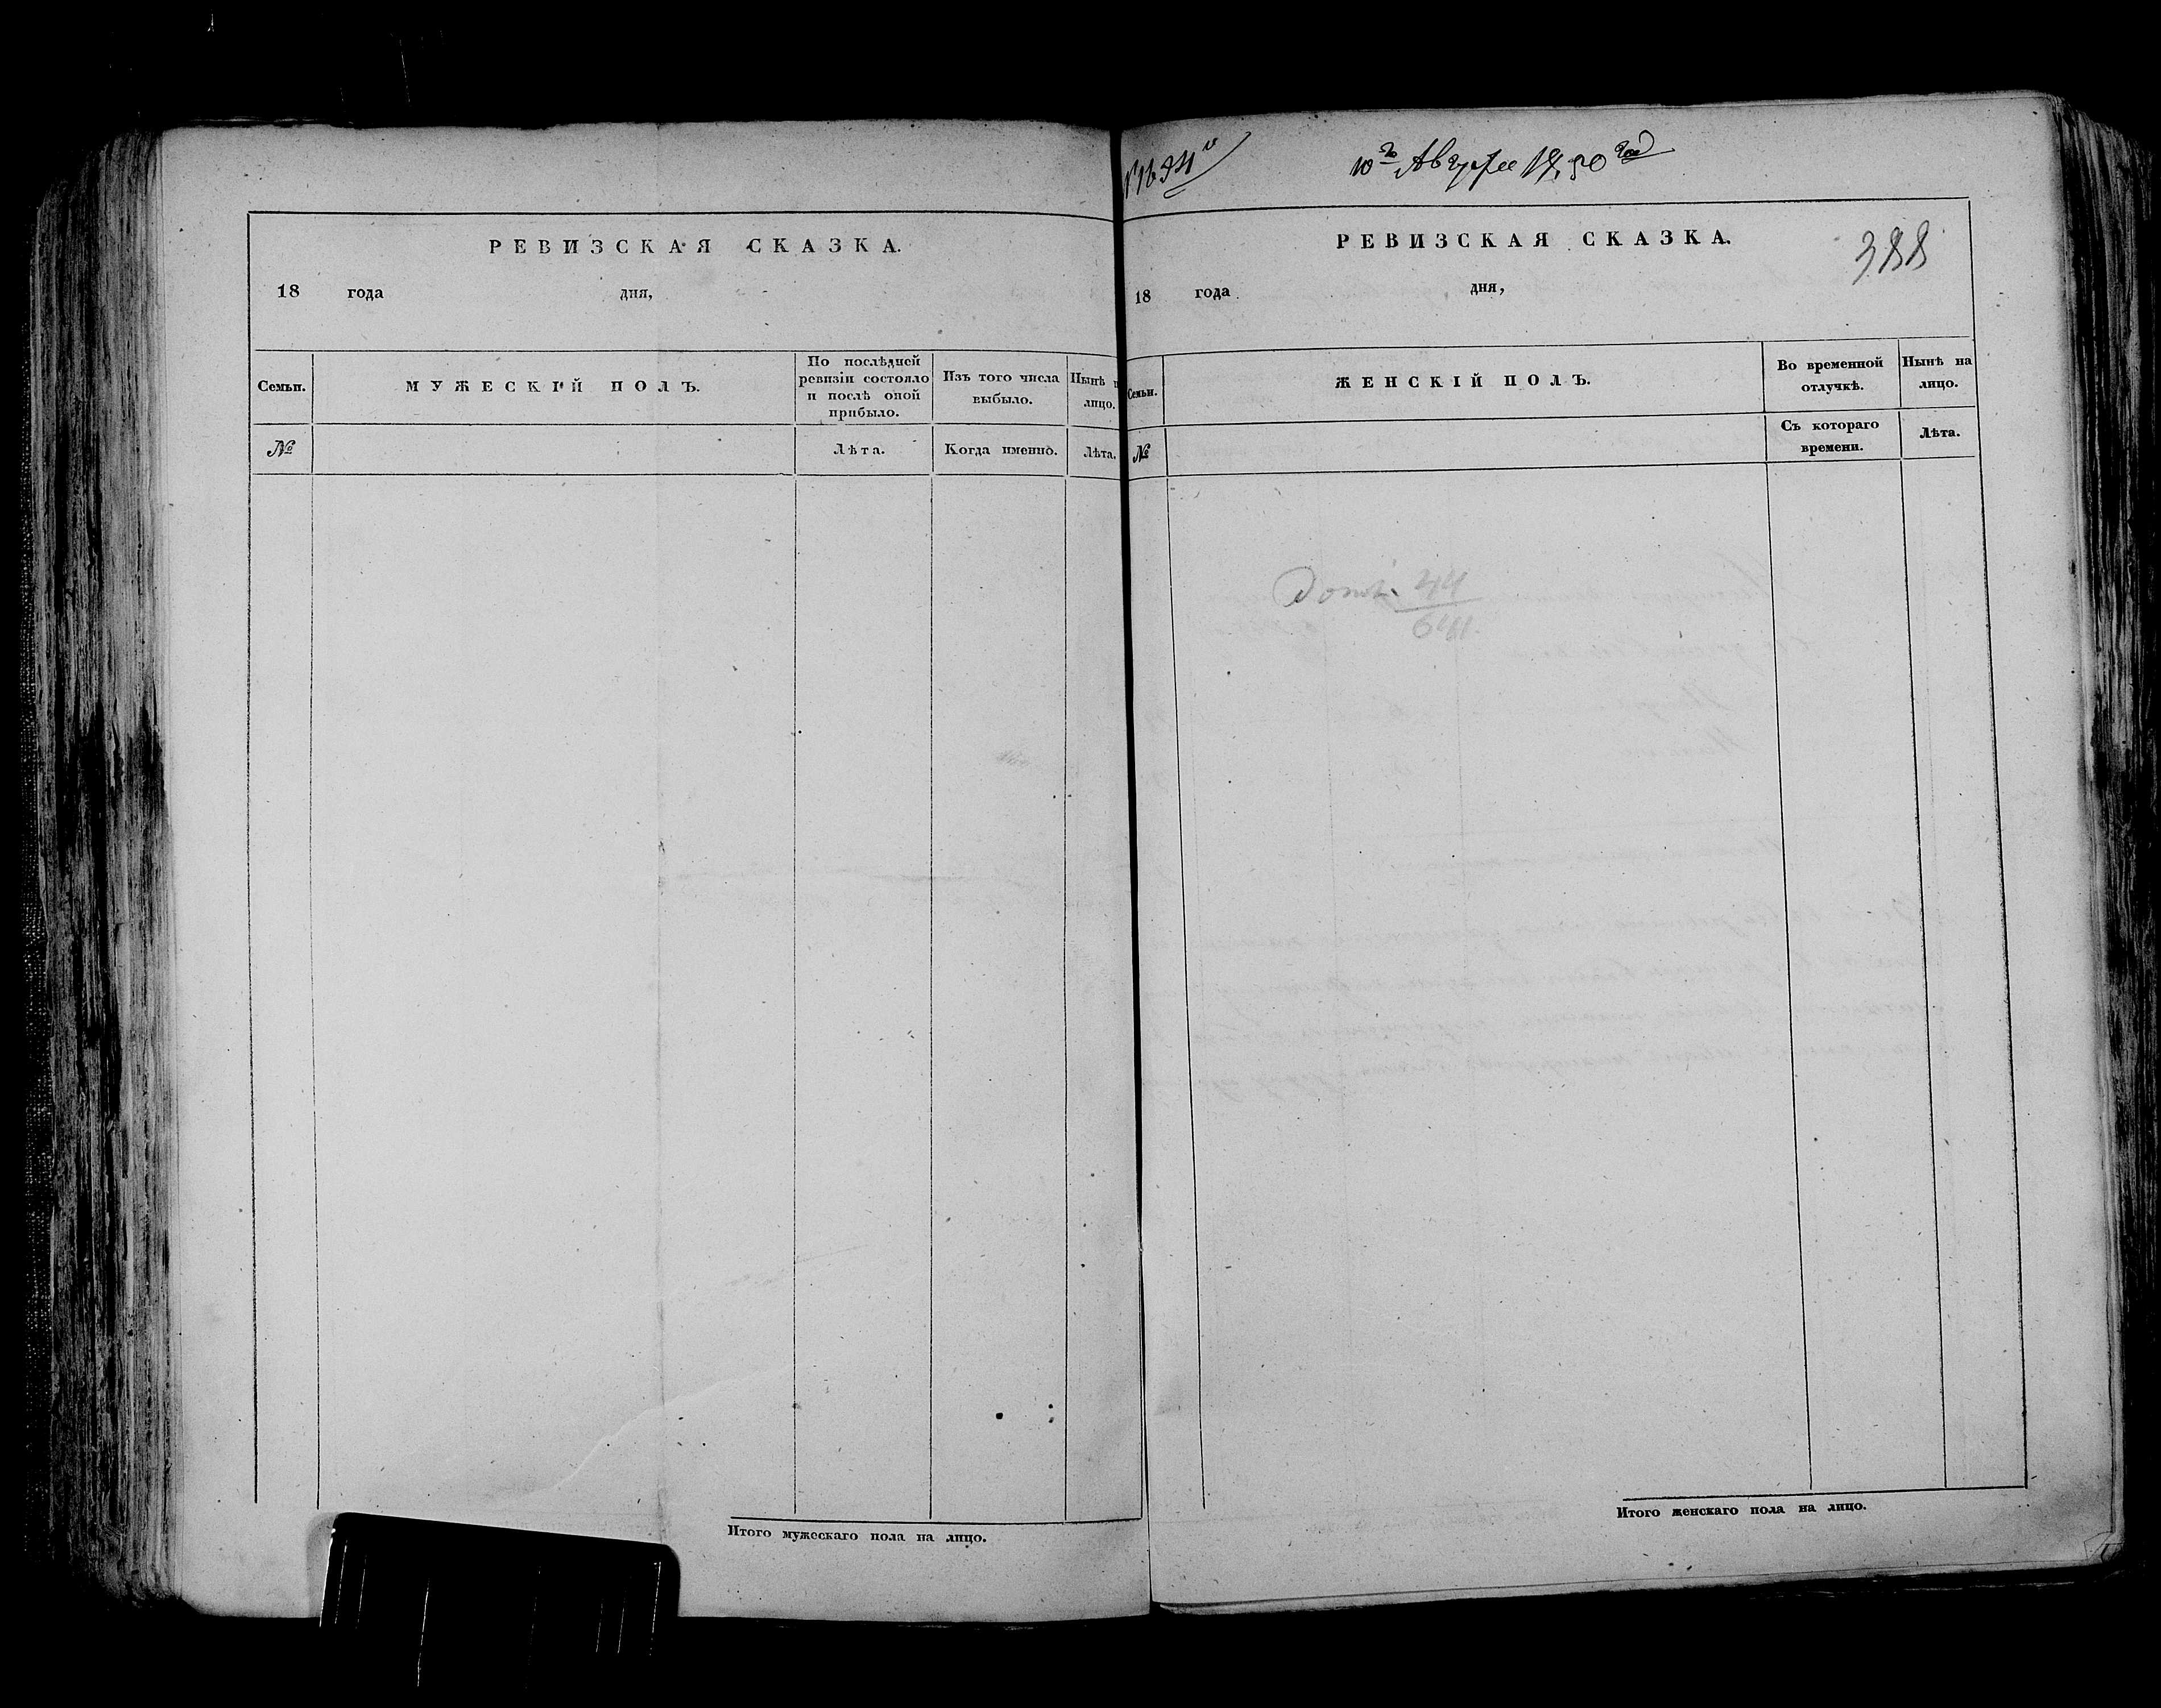 РЕВИЗСКАЯ СКАЗКА.
18 года дня,
Семьи.
МУЖЕСКІЙ ПОЛЪ.
По послѣдней
ревизіи состояло
и послѣ оной
прибыло.
Изъ того числа
выбыло.
Нынѣ
лицо.
№
Лѣта.
Когда именно.
Лѣта.
Итого мужескаго пола на лицо.
10го Августа 1850 года
РЕВИЗСКАЯ СКАЗКА.
388
18 года дня,
Семьи.
ЖЕНСКІЙ ПОЛЪ.
Во временной
отлучкѣ.
Нынѣ на
лицо.
№
Съ котораго
времени.
Лѣта.
44
Итого женскаго пола на лицо.